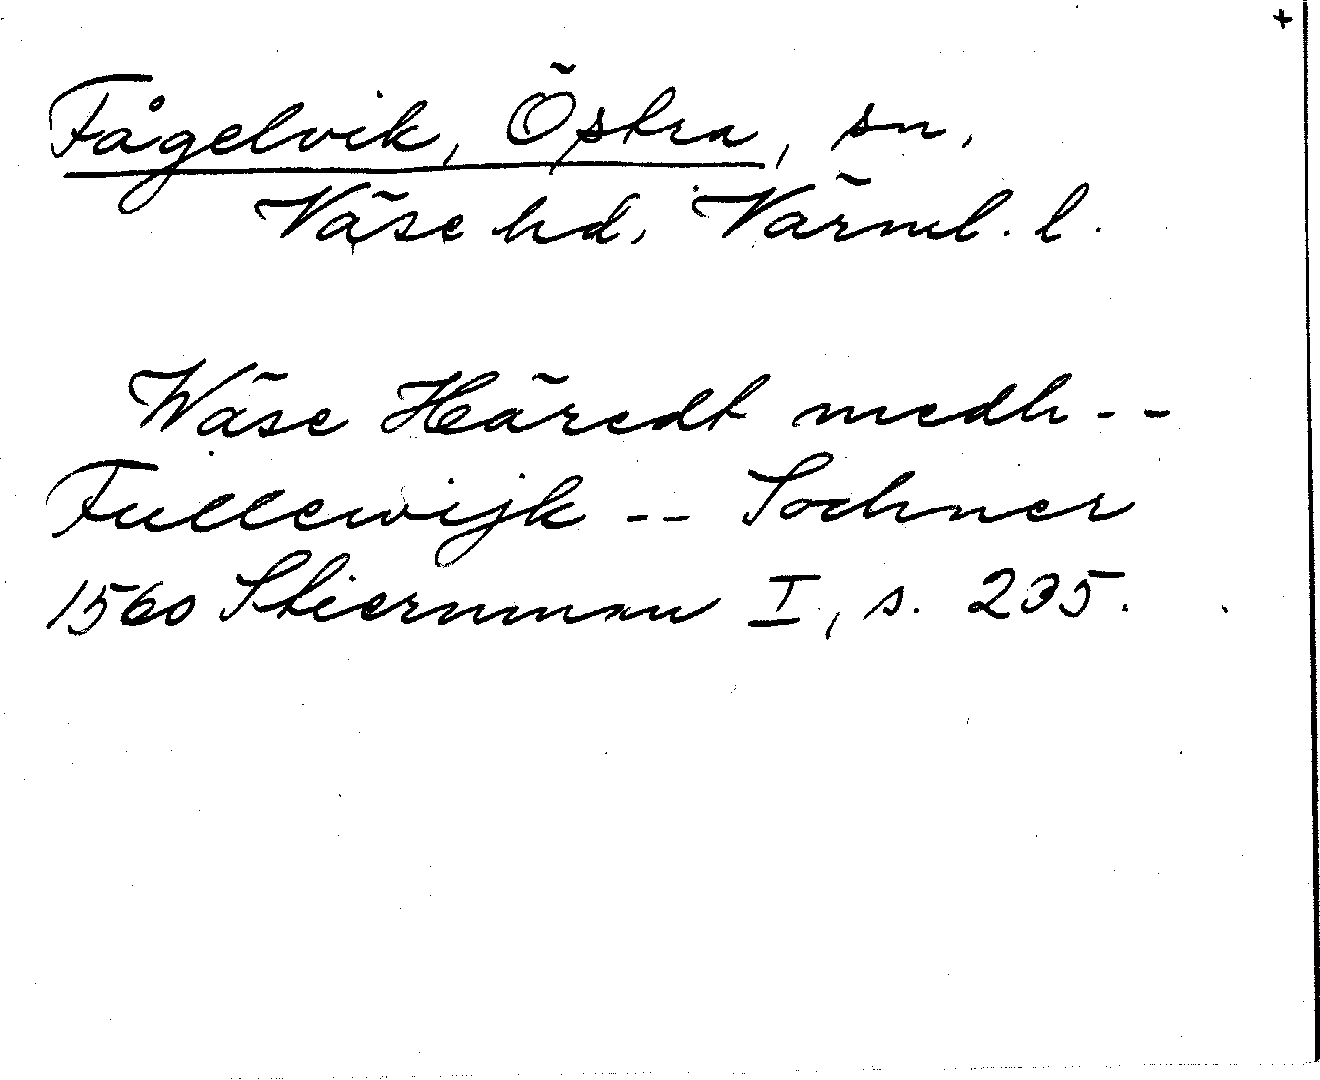 +
Fågelvik, Östra, sn,
Väse hd, Värml. l.
Wäse Häredt medh - -
Fullewijk - - Sochner
1560 Stiernman I, s. 235.